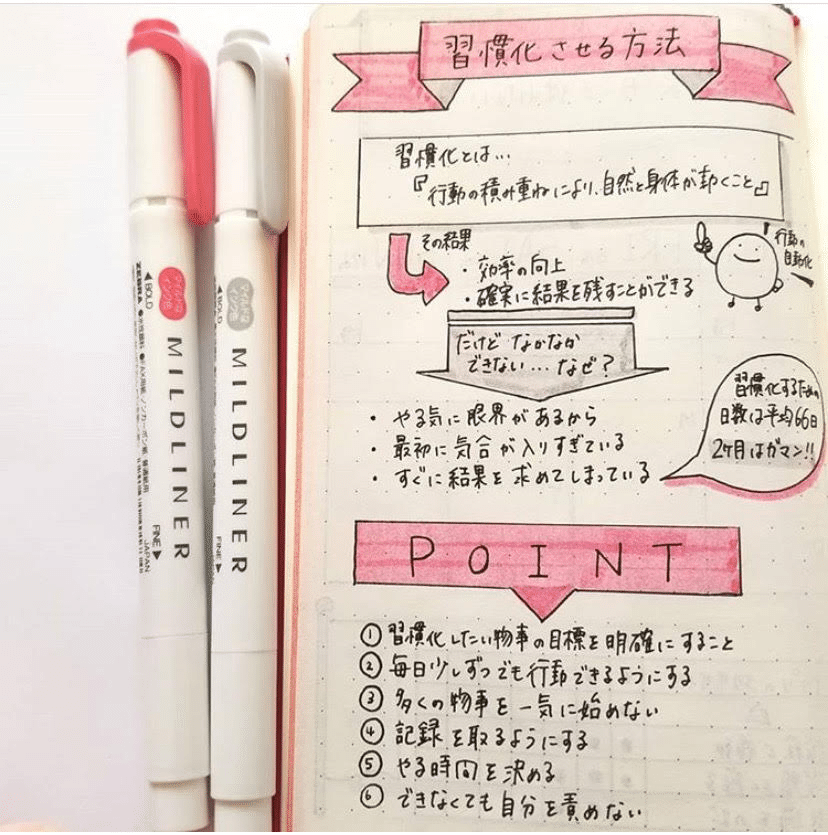 習慣化させる方法
習慣化とは…
『行動の積み重ねにより、自然と身体が動くこと』
その結果
・効率の向上
・確実に結果を残すことができる
行動の
自動化
だけど なかなか
できない…なぜ?
・やる気に限界があるから
・最初に気合が入りすぎている
・すぐに結果を求めてしまっている
習慣化するための
日数は平均66日
2ヶ月はガマン!!
POINT
① 習慣化したい物事の目標を明確にすること
② 毎日少しずつでも行動できるようにする
③ 多くの物事を一気に始めない
④ 記録を取るようにする
⑤ やる時間を決める
⑥ できなくても自分を責めない
ZEBRA
◀BOLD
マイルドな
インク色
MILDLINER
FINE▶
JAPAN
◀BOLD
マイルドな
インク色
MILDLINER
FINE▶